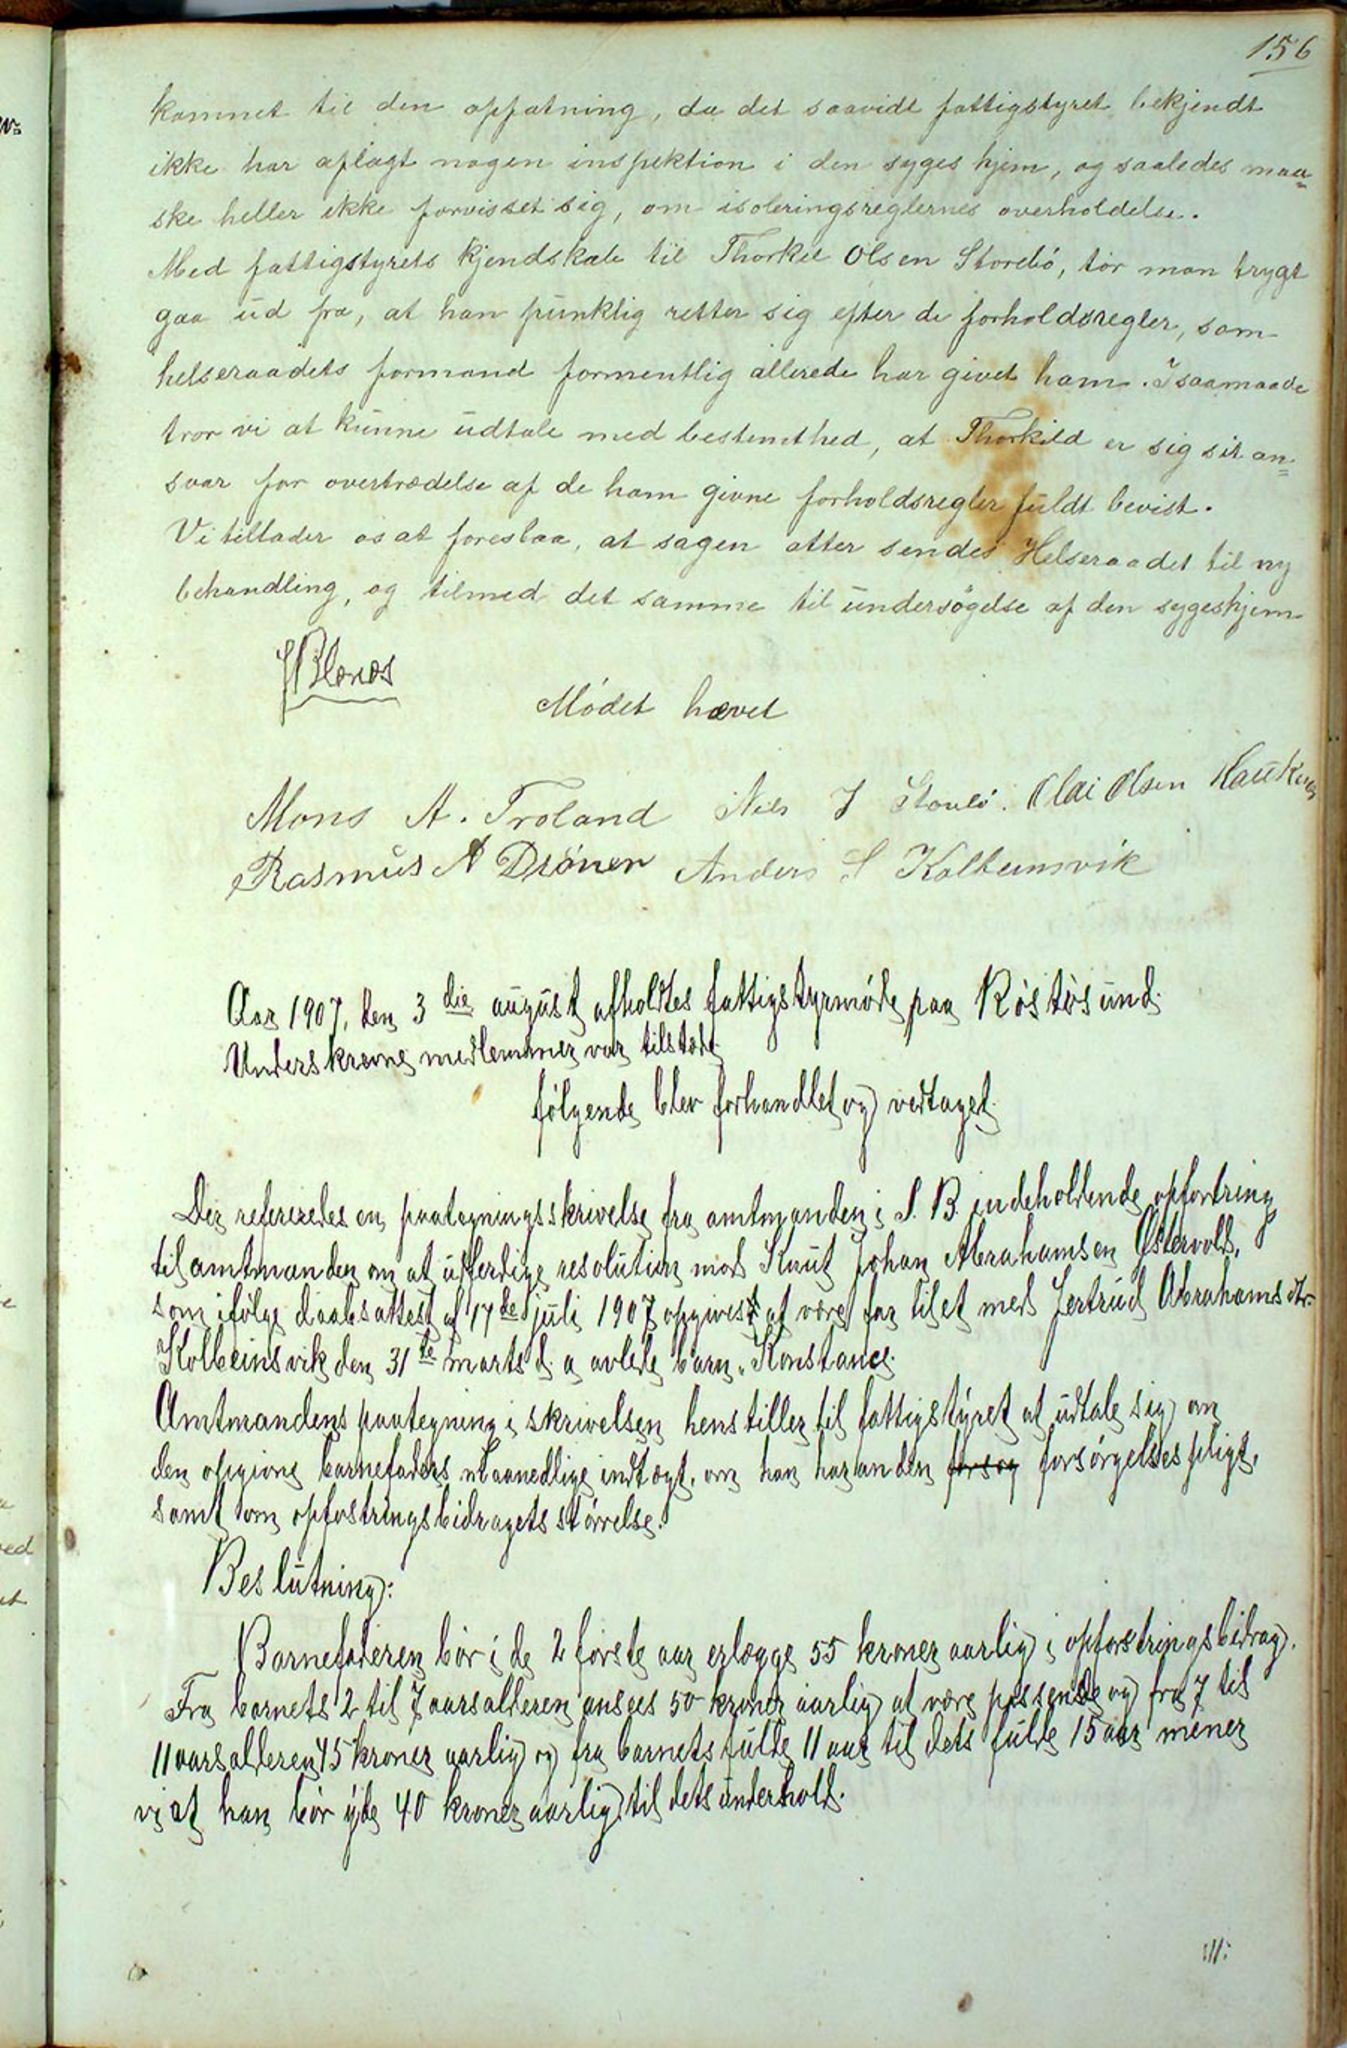 156
kommet til den opfatning, da det saavidt fattigstyret bekjendt
ikke har aflagt nogen inspektion i den syges hjem, og saaledes maa=
ske heller ikke forvisset sig, om isoleringsreglernes overholdelse.
Med fattigstyrets kjendskab til Thorkel Olsen Storebö, tör man trygt
gaa ud fra, at han punktlig retter sig efter de forholdsregler, som
helseraadets formand formentlig allerede har givet ham. I saamaade
tror vi at kunne udtale med bestemthed, at Thorkild er sig sit an=
svar for overtrædelse af de ham givne forholdsregler fuldt bevist.
Vi tillader os at foreslaa, at sagen atter sendes Helseraadet til ny
behandling, og tilmed det samme til undersøgelse af den sygeshjem
Blænes
Mödet hævet
Mons A. Troland Nils J Storebö. Olai Olsen Haukenes
Rasmus A Drönen Anders S Kolbeinsvik
Aar 1907, den 3die august afholdtes fattigstyrmöde paa Röstösund.
Underskrevne medlemmer var tilstæde
følgende blev forhandlet og vedtaget.
Der refereredes en paategningsskrivelse fra amtmanden i S. B. indeholdende opfordring
til amtmanden om at udferdige resolution mod Knut Johan Abrahamsen Østervold,
som ifølge daabsattest af 17de juli 1907 opgives at være far til et med Jertrud Abrahamsdtr.
Kolbeinsvik den 31te marts d. a avlede barn "Konstance.
Amtmandens paategning i skrivelsen henstiller til fattigstyret at udtale sig om
den opgivne barnefaders maanedlige indtægt, om han har anden forsøg forsørgelsespligt,
samt om opfostringsbidragets størrelse.
Beslutning:
Barnefaderen bör i de 2 første aar erlægge 55 kroner aarlig i opfostringsbidrag.
Fra barnets 2 til 7 aarsalderen ansees 50 kroner aarlig at være passende og fra 7 til
11 aarsalderen 45 kroner aarlig og fra barnets fulde 11 aar til dets fulde 15 aar mener
vi at han bör yde 40 kroner aarlig til dets underhold.
:///: